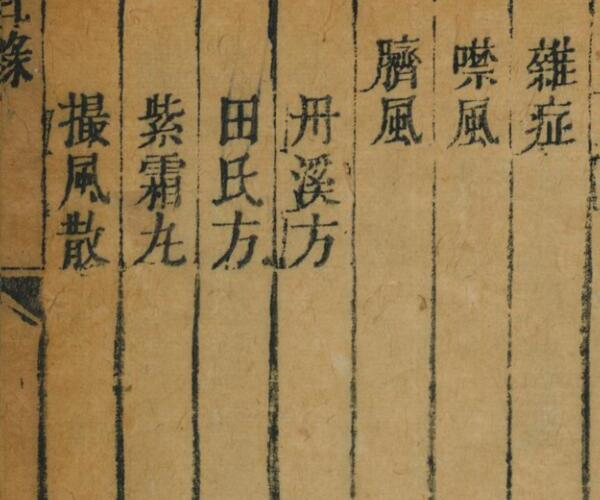 雜症
噤風
臍風
丹溪方
田氏方
紫霜丸
撮風散